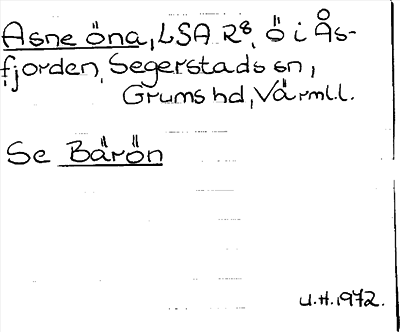 Asne öna, LSA R8, ö i Ås-
fjorden, Segerstads sn,
Grums hd, Värml.l.
Se Bärön
U.H. 1972.